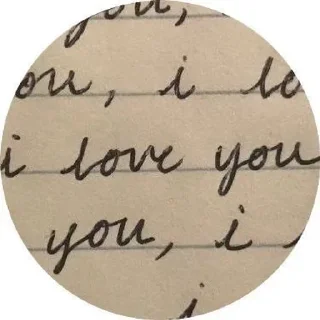 you,
ou, i lo
i love you
you, i
i